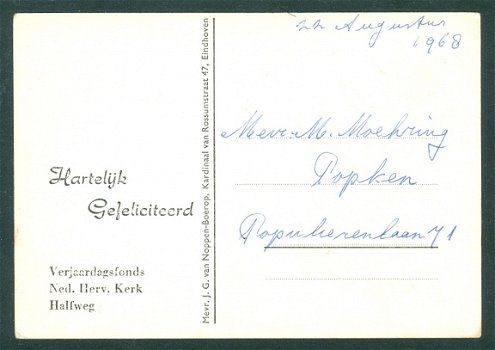 22 Augustus
1968
Hartelijk
Gefeliciteerd
Verjaardagsfonds
Ned. Herv. Kerk
Halfweg
Mevr. J. G. van Noppen-Boerop, Kardinaal van Rossumstraat 47, Eindhoven
Mevr. M. Moehring
Popken
Populierenlaan 71